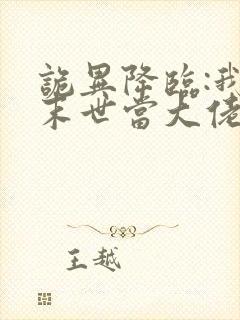 詭異降臨:我
末世當大佬
王越